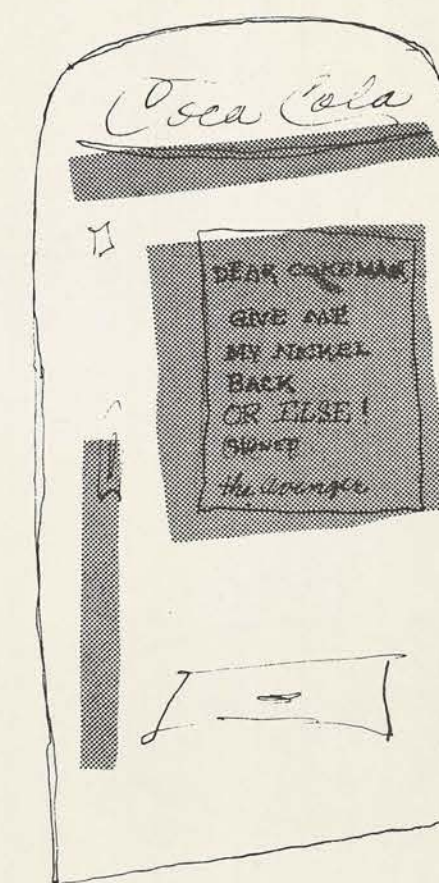 Coca Cola
DEAR COKEMAN
GIVE ME
MY NICKEL
BACK
OR ELSE!
SIGNED
the avenger